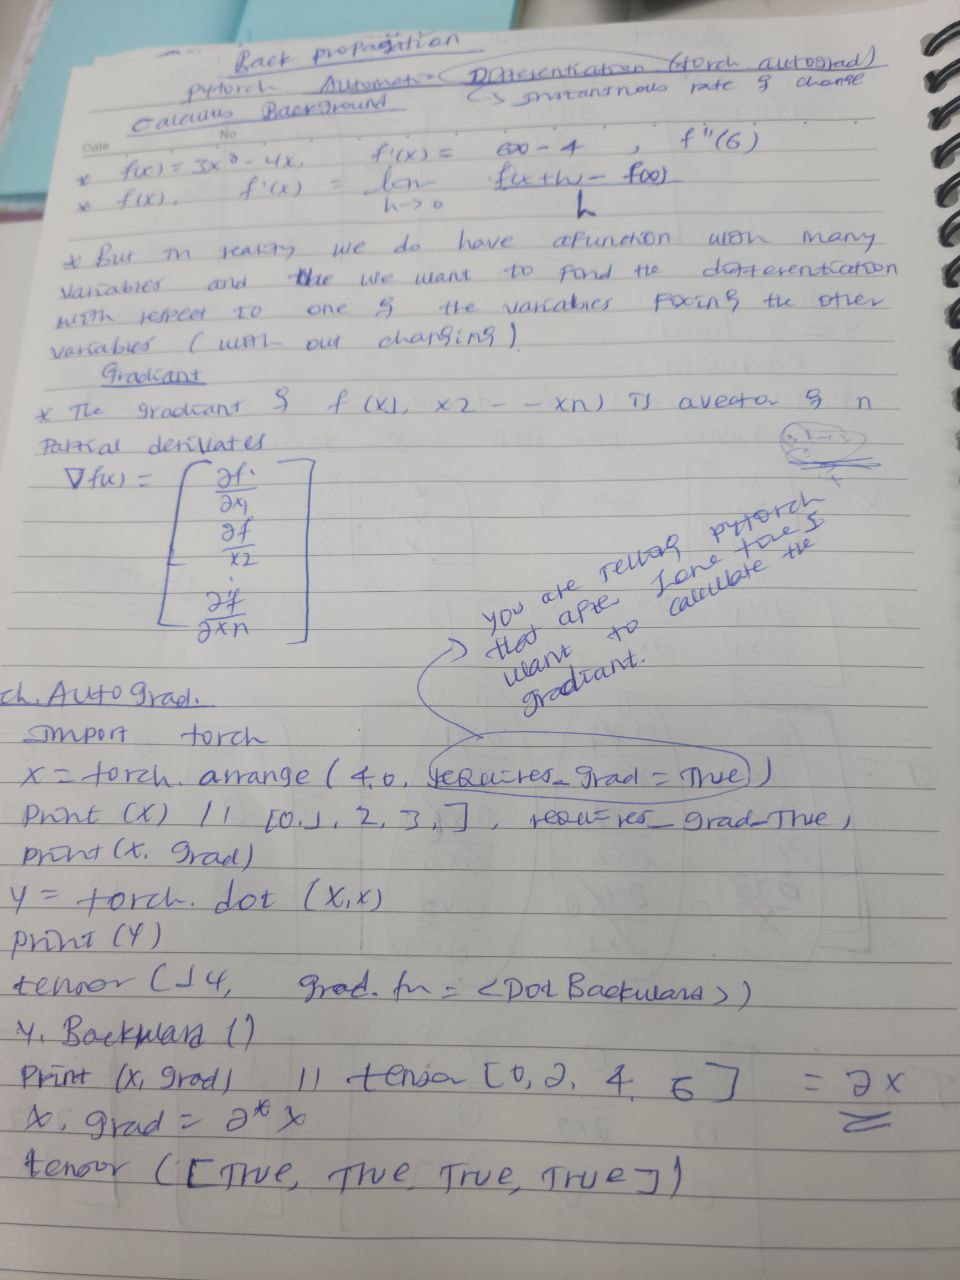 Back propagation
Pytorch Automatic Differentiation (torch autograd)
Calculus Background ↳ instantnous rate of change
Date No
* f(x) = 3x² - 4x, f'(x) = - 4 , f"(6)
* f(x). f'(x) = lim h->0 f(x+h) - f(x) / h
* But in reality we do have afunction with many
variables and the we want to find the differentication
with respect to one of the variables the other
variables ( with out changing )
Gradiant
* The gradiant of f (x1, x2 - - xn) is avector of n
Partial derivates
∇f(x) = [ ∂f/∂x1
∂f/x2
∂f/∂xn ]
you are telling pytorch
that after Some time I
want to calculate the
gradiant.
ch. Auto Grad.
Import torch
x = torch. arrange ( 4.0, requires_grad = True )
Print (x) // [0, 1, 2, 3, ], requires_grad=True,
print (x. grad)
y = torch. dot (x,x)
print (y)
tensor (14, grad. fn = <Dot Backward>)
y. Backward ()
Print (x, grad) // tensor [0, 2, 4, 6] = 2x
x. grad = 2*x
tensor ([True, True, True, True])